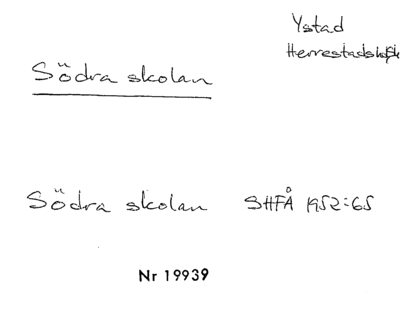 Ystad
Södra skolan
Södra skolan SHFÅ 1952:65
Nr 19939